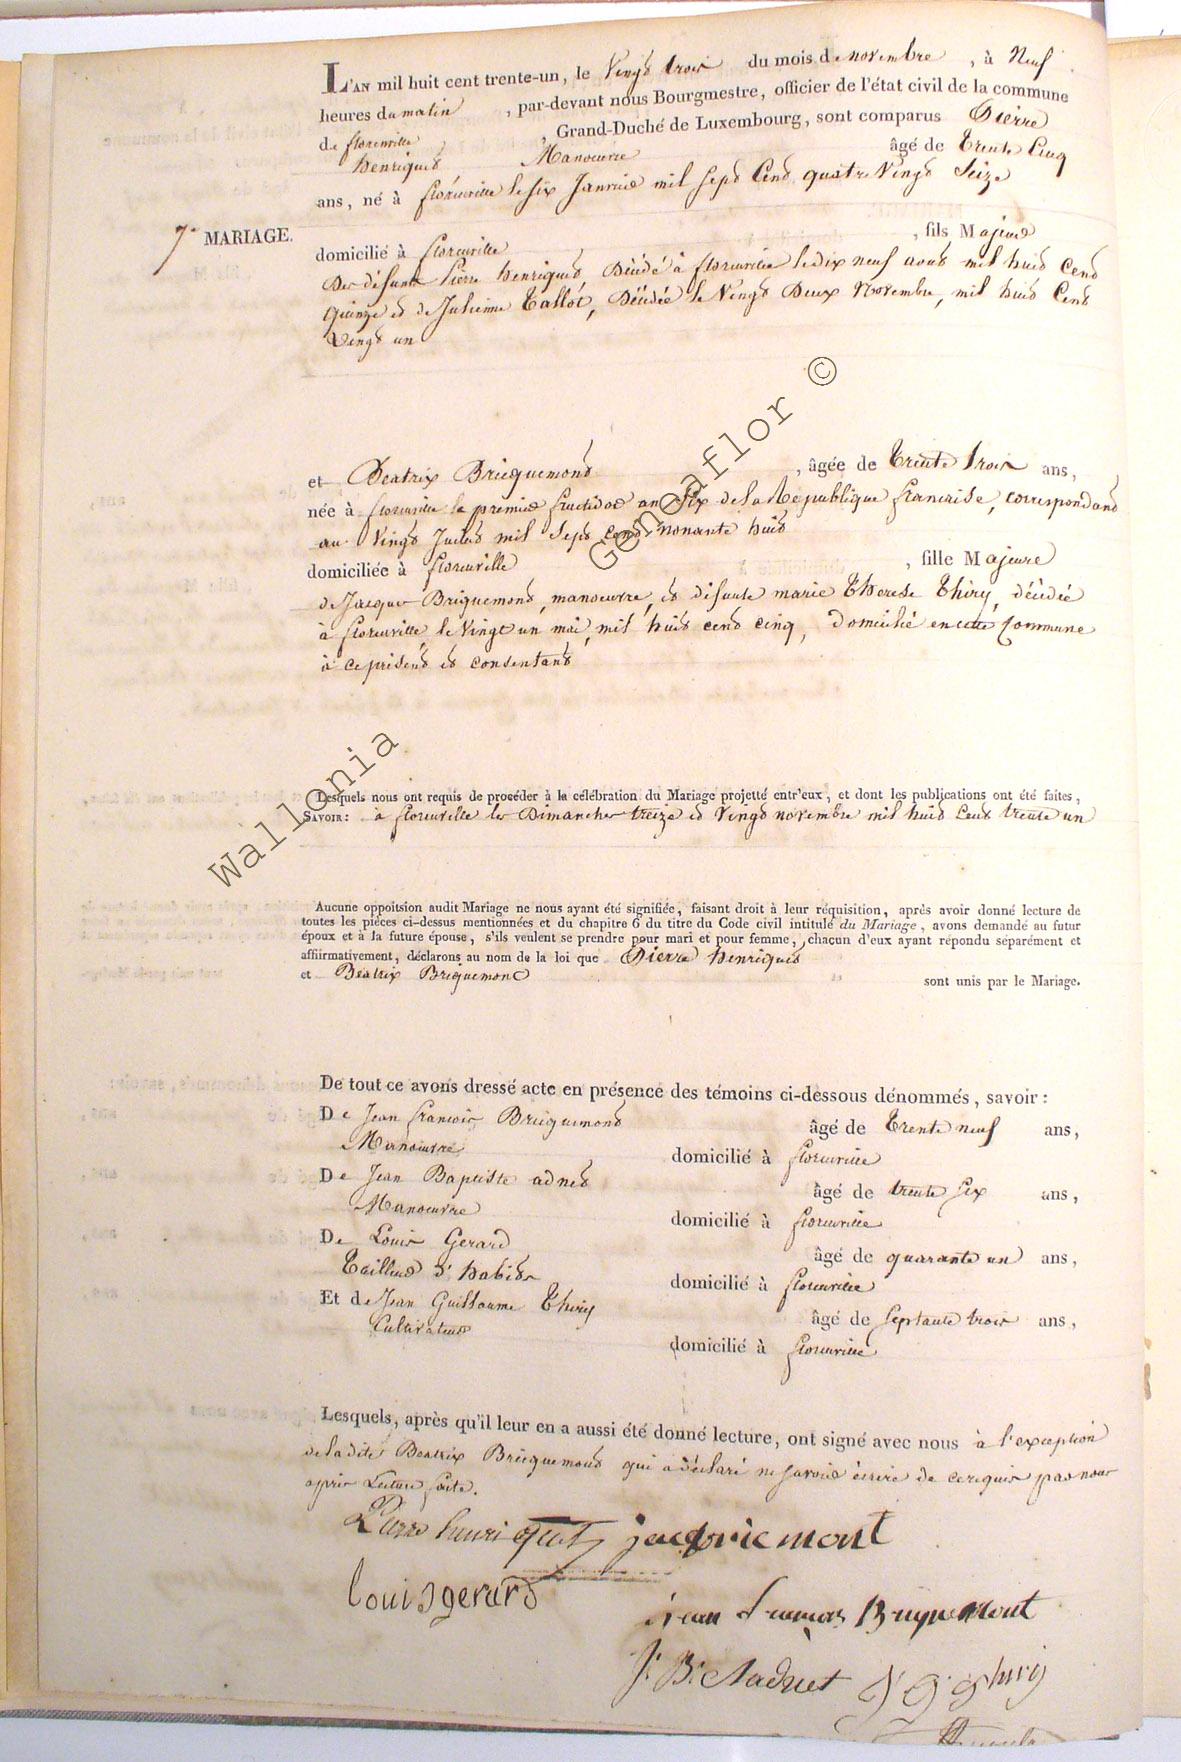 L'AN mil huit cent trente-un, le Vingt trois du mois de novembre, à Neuf
heures du matin, par-devant nous Bourgmestre, officier de l'état civil de la commune
de florenville, Grand-Duché de Luxembourg, sont comparus Pierre
henriquet Manoeuvre âgé de trente Cinq
ans, né à florenville le six Janvier mil sept Cent quatre Vingt Seize
7e MARIAGE.
domicilié à florenville, fils Majeur
Des défunts Pierre henriquet, Décédé à florenville le dix neuf août mil huit Cent
quinze et de Julienne Tallot, Décédée le Vingt Deux Novembre, mil huit Cent
Vingt un
et Beatrix Bricquemont, âgée de trente trois ans,
née à florenville le premier fructidor an Six de la République francaise, correspondant
au Vingt Juillet mil Sept cent nonante huit
domiciliée à florenville, fille Majeure
de Jacques Briquemont, manoeuvre, et défunte marie therese thiry, décédée
à florenville, le Vingt un mai, mil huit cent cinq, Domicilié en cette Commune
à ce présent et consentant
Lesquels nous ont requis de procéder à la célébration du Mariage projetté entr'eux, et dont les publications ont été faites,
SAVOIR: à florenville les Dimanches treize et Vingt novembre mil huit cent trente un
Aucune oppoitsion audit Mariage ne nous ayant été signifiée, faisant droit à leur réquisition, après avoir donné lecture de
toutes les pièces ci-dessus mentionnées et du chapitre 6 du titre du Code civil intitulé du Mariage, avons demandé au futur
époux et à la future épouse, s'ils veulent se prendre pour mari et pour femme, chacun d'eux ayant répondu séparément et
affirmativement, déclarons au nom de la loi que Pierre henriquet
et Beatrix Briquemont sont unis par le Mariage.
De tout ce avons dressé acte en présence des témoins ci-dessous dénommés, savoir:
De Jean francois Bricquemont âgé de trente neuf ans,
Manoeuvre domicilié à florenville
De Jean Baptiste adnet âgé de trente six ans,
Manoeuvre domicilié à florenville
De Louis Gerard âgé de quarante un ans,
tailleur d'habits domicilié à florenville
Et de Jean Guillaume thiry âgé de septante trois ans,
Cultivateur domicilié à florenville
Lesquels, après qu'il leur en a aussi été donné lecture, ont signé avec nous à l'exception
de la dite Beatrix Bricquemont qui a déclaré ne savoir écrire de ce requis par nous
après Lecture faite.
Pierre henriquet jacqbricmont
louis gerard
Jean francois Briquemont
J. B. Nadnet J G Thiry
Wallonia Geneaflor ©